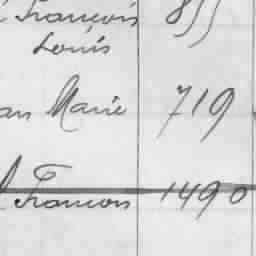 François 855
Louis
an Marie 719
l François 1490